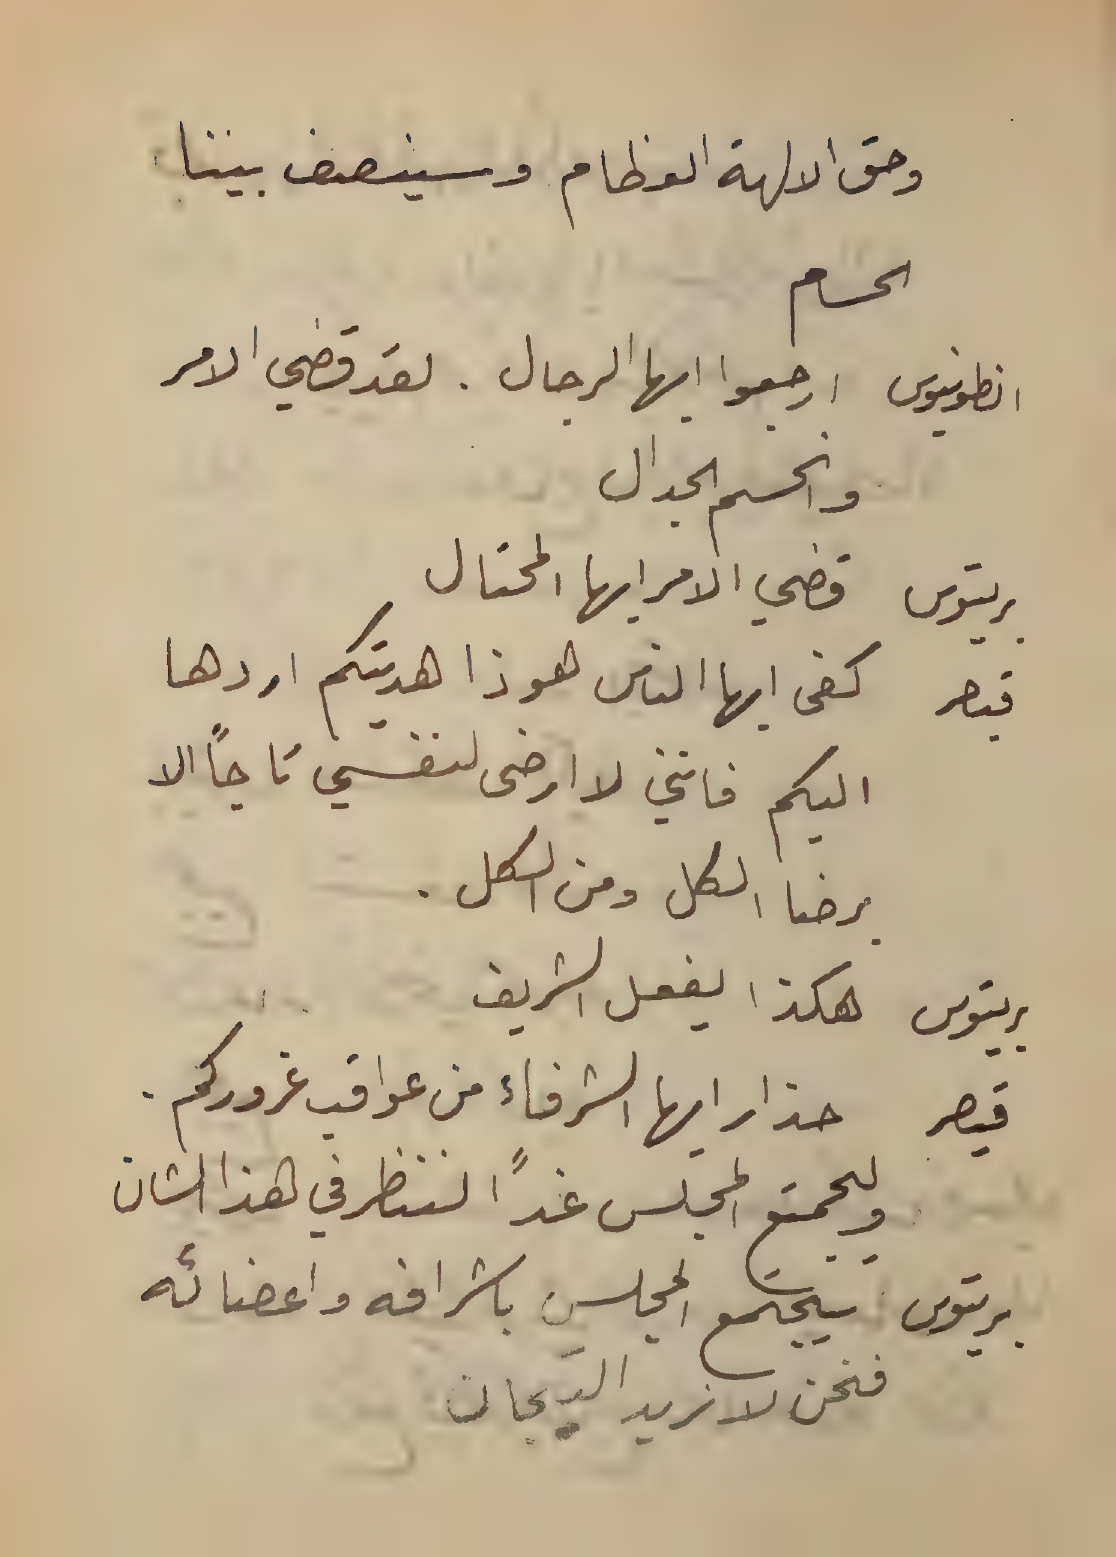 وحق الالهة العظام وسينصف بيننا
الحسام
انطونيوس ارجعوا ايها الرجال . لقد قضي الامر
وانحسم الجدال
بريتوس قضي الامر ايها المحتال
قيصر كفى ايها الناس هوذا هديتكم اردها
اليكم فانني لا ارضى لنفسي تاجاً الا
برضا الكل ومن الكل .
بريتوس هكذا يفعل الشريف
قيصر حذار ايها الشرفاء من عواقب غروركم .
وليجمتع المجلس غداً لننظر في هذا الشان
بريتوس سيجتمع المجلس باشرافه واعضائه
فنحن لا نريد التيجان